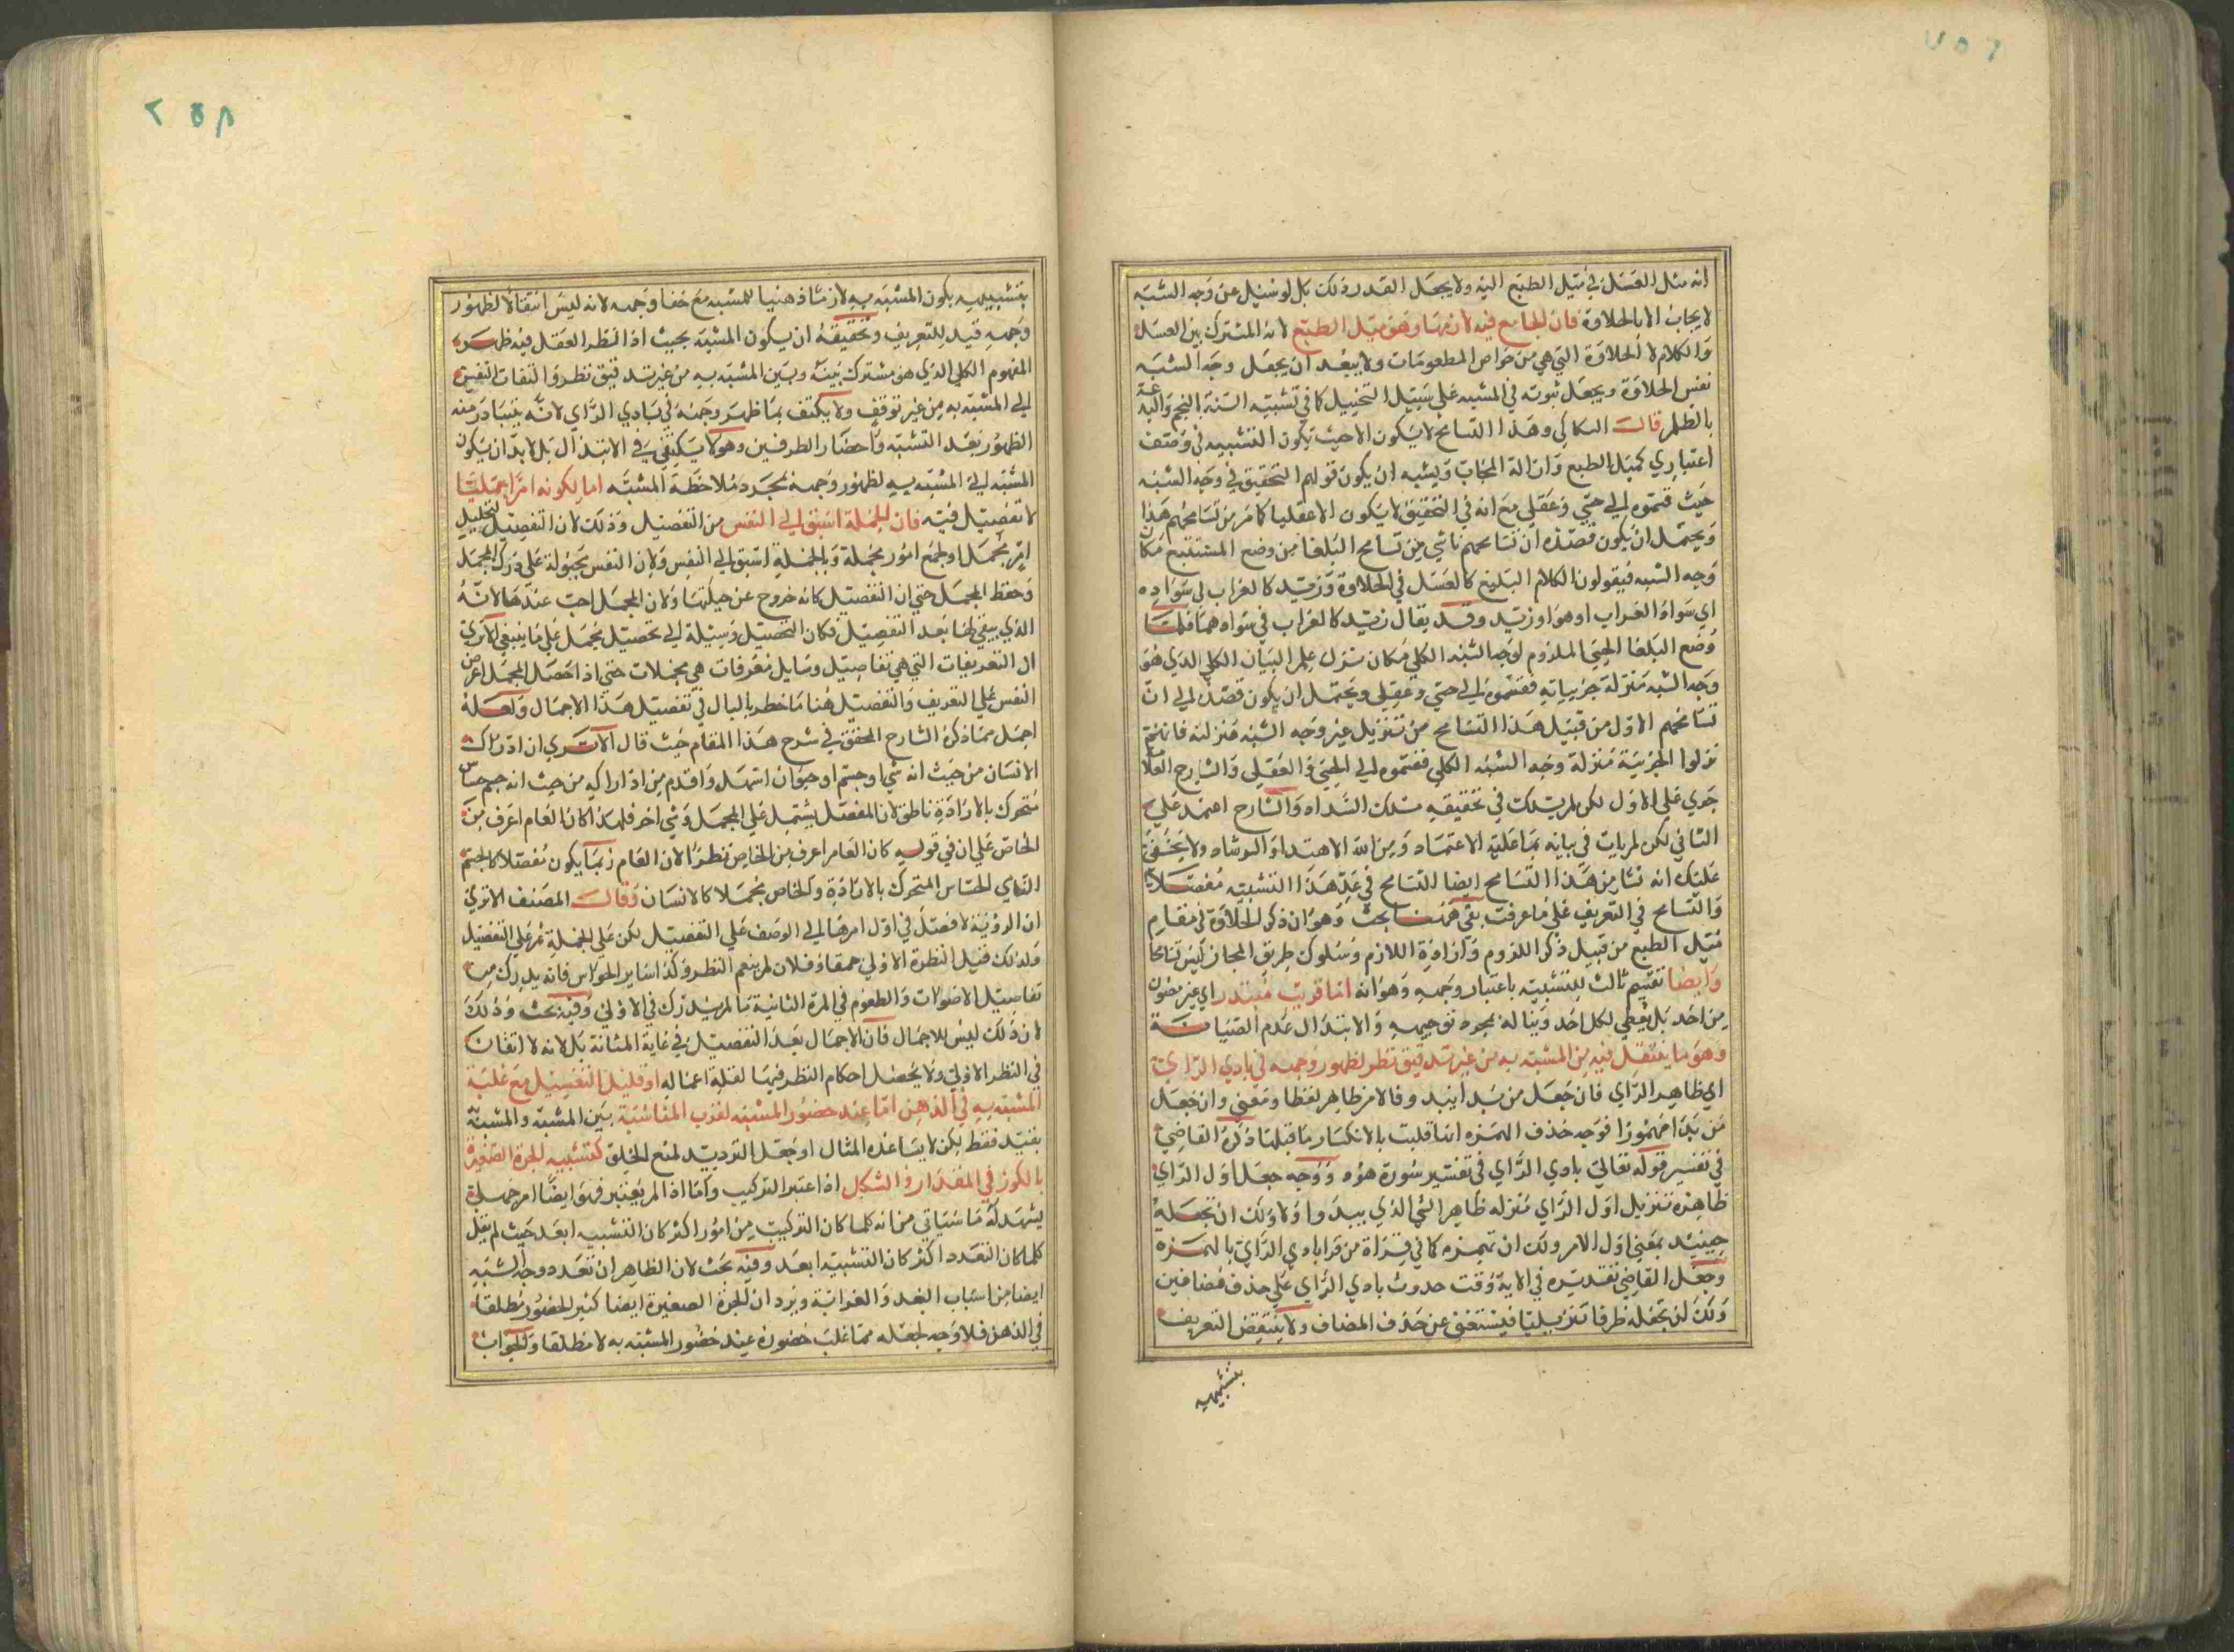 ٢٥٧
انه مثل العسل في ميل الطبع اليه ولا يجعل القدر ذلك بل لو سئل عن وجه الشبه
لا يجاب الا بالحلاوة فان الجامع فيه لازمها وهو ميل الطبع لانه المشترك بين العسل
والكلام لا الحلاوة التي هي من خواص المطعومات ولا يبعد ان يجعل وجه الشبه
نفس الحلاوة ويجعل ثبوته في المشبه على سبيل التخييل كما في تشبيه السنة بالنجم والبدعة
بالظلم قال السكاكي وهذا التسامح لا يكون الا حيث يكون التشبيه في وصف
اعتباري كميل الطبع وازالة الحجاب ويشبه ان يكون قولهم التحقيق في وجه الشبه
حيث قسموه الي حسي وعقلي مع انه في التحقيق لا يكون الا عقليا كما مر من تسامحهم هذا
ويحتمل ان يكون قصده ان تسامحهم ناشي من تسامح البلغا من وضع المستتبع مكان
وجه الشبه فيقولون الكلام البليغ كالعسل في الحلاوة وزيد كالغراب في سواده
اي سواد الغراب او هو او زيد وقد يقال زيد كالغراب في سوادهما فلما
وضع البلغا الحسي الملزوم لوجه الشبه الكلي مكان نزل علم البيان الكلي الذي هو
وجه الشبه منزلة جزيياته فقسموه الي حسي وعقلي ويحتمل ان يكون قصده الي ان
تسامحهم الاول من قبيل هذا التسامح من تنزيل غير وجه الشبه منزلته فانهم
نزلوا الجزئية منزلة وجه الشبه الكلي فقسموه الي الحسي والعقلي والشارح العلامة
جري علي الاول لكن لم يسلك في تحقيقه مسلك السداد والشارح اعتمد علي
الثاني لكن لم يات في بيانه بما عليه الاعتماد ومن الله الاهتداء والرشاد ولا يخفي
عليك انه نشا من هذا التسامح ايضا التسامح في عد هذا التشبيه مفصلا
والتسامح في التعريف علي ما عرفت بقي ههنا بحث وهو ان ذكر الحلاوة في مقام
ميل الطبع من قبيل ذكر الملزوم وارادة اللازم وسلوك طريق المجاز ليس تسامحا
وايضا تقسيم ثالث للتشبيه باعتبار وجهه وهو انه اما قريب مبتذل اي غير مصون
من احد بل يعطي لكل احد ويناله بمجرد توجيهه والابتذال عدم الصيانة
وهو ما ينتقل فيه من المشبه به من غير تدقيق نظر لظهور وجهه في بادي الراي
اي ظاهر الراي فان جعل من بدا يبدو فالامر ظاهر لفظا ومعني وان جعل
من بدا مهموزا فوجه حذف الهمزه انها قلبت بالانكسار ما قبلها ذكره القاضي
في تفسير قوله تعالي بادي الراي في تفسير سورة هود ووجه جعل اول الراي
ظاهره تنزيل اول الراي منزله ظاهر الشي الذي يبدو اولا ولك ان تجعله
حينئذ بمعني اول الامر ولك ان تهمزه كما في قراة من قرا بادي الراي بالهمزه
وجعل القاضي تقديره في الاية وقت حدوث بادي الراي علي حذف مضافين
ولك ان تجعله ظرفا تنزيليا فيستغني عن حذف المضاف ولا ينتقض التعريف
بتشبيهه
٢٥٨
بتشبيهه بكون المشبه به لازما ذهنيا للمشبه مع خفا وجهه لانه ليس انتقالا لظهور
وجهه قيد للتعريف وتحقيقه ان يكون المشبه بحيث اذا نظر العقل فيه ظهر
المفهوم الكلي الذي هو مشترك بينه وبين المشبه به من غير تدقيق نظر والتفات النفس
الي المشبه به من غير توقف ولا يكتف بما ظهر وجهه في بادي الراي لانه يتبادر منه
الظهور بعد التشبيه واحضار الطرفين وهو لا يكتفي في الابتذال بل لا بد ان يكون
المشبه الي المشبه به لظهور وجهه بمجرد ملاحظة المشبه اما لكونه امرا جمليا
لا تفصيل فيه فان الجملة اسبق الي النفس من التفصيل وذلك لان التفصيل تحليل
امر مجمل او جمع امور مجملة وبالجملة اسبق الي النفس ولان النفس مجبولة علي درك المجمل
وحفظ المجمل حتي ان التفصيل كانه خروج عن جبلتها ولان المجمل احب عندها لانه
الذي يبقي لها بعد التفصيل فكان التفصيل وسيلة الي تحصيل مجمل علي ما ينبغي الا تري
ان التعريفات التي هي تفاصيل وسايل معرفات هي مجملات حتي اذا حصل المجمل اعرض
النفس علي التعريف والتفصيل هنا ما خطر بالبال في تفصيل هذا الاجمال ولعله
اجمل مما ذكره الشارح المحقق في شرح هذا المقام حيث قال الا تري ان ادراك
الانسان من حيث انه شي او جسم او حيوان اسهل واقدم من ادراكه من حيث انه جسم حساس
متحرك بالارادة ناطق لان المفصل يشتمل علي المجمل وشي اخر فلهذا كان العام اعرف من
الخاص علي ان في قوله كان العام اعرف من الخاص نظرا لان العام ربما يكون مفصلا كالجسم
النامي الحساس المتحرك بالارادة والخاص مجملا كالانسان وقال المصنف الا تري
ان الرؤية لا فصل في اول امرها الي الوصف علي التفصيل لكن علي الجملة ثم علي التفصيل
ولذلك قيل النظرة الاولي حمقاء وفلان لم ينعم النظر وكذا ساير الحواس فانه يدرك من
تفاصيل الاصوات والطعوم في المرة الثانية ما لم يدرك في الاولي وفيه بحث وذلك
لان ذلك ليس للاجمال فان الاجمال بعد التفصيل في غاية المتانة بل لانه لا اتقان
في النظر الاولي ولا يحصل احكام النظر فيها لقلة اعماله او قليل التفصيل مع غلبة
المشبه به في الذهن اما عند حضور المشبه لقرب المناسبة بين المشبه والمشبه به
بقيد فقط لكن لا يساعده المثال او جعل الترديد لمنع الخلو كتشبيه الجرة الصغيرة
بالكوز في المقدار والشكل اذا اعتبر التركيب واما اذا لم يعتبر فهو ايضا امر جملي
يشهد له ما سياتي من انه كلما كان التركيب من امور اكثر كان التشبيه ابعد حيث لم يقل
كلما كان التعدد اكثر كان التشبيه ابعد وفيه بحث لان الظاهر ان تعدد وجه الشبه
ايضا من اسباب البعد والغرابة ويرد ان الجرة الصغيرة ايضا كثير الحضور مطلقا
في الذهن فلا وجه لجعله مما غلب حضوره عند حضور المشبه به لا مطلقا والجواب